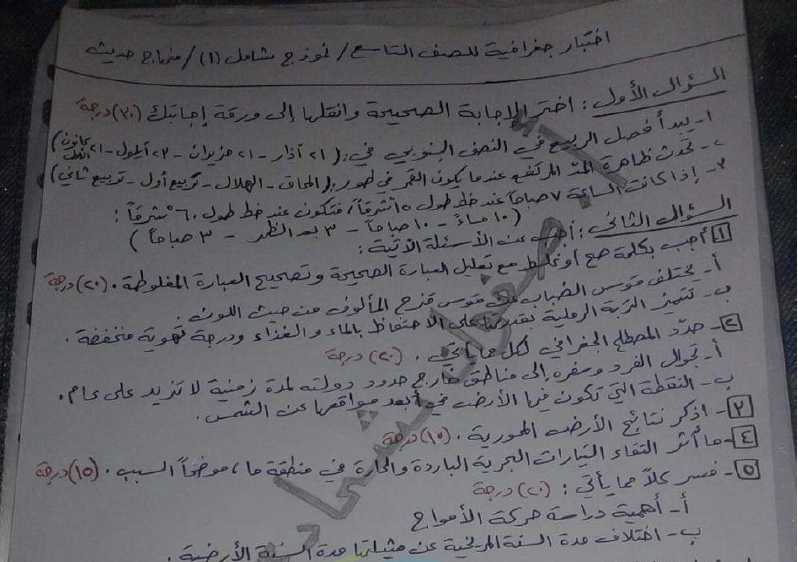 اختبار جغرافية للصف التاسع / نموذج شامل (١) / منهاج حديث
السؤال الأول: اختر الإجابة الصحيحة وانقلها إلى ورقة إجابتك (٣٠) درجة
١- يبدأ فصل الربيع في النصف الجنوبي في: (٢١ آذار - ٢١ حزيران - ٢٣ أيلول - ٢١ كانون الأول)
٢- تحدث ظاهرة المد المرتفع عندما يكون القمر في طور: (المحاق - الهلال - تربيع أول - تربيع ثاني)
٣- إذا كانت الساعة ٧ صباحاً عند خط طول ١٥ شرقاً، فتكون عند خط طول ٦٠ شرقاً:
(١٠ مساءً - ١٠ صباحاً - ٣ بعد الظهر - ٣ صباحاً)
السؤال الثاني: أجب عن الأسئلة الآتية:
١ أجب بكلمة صح أو غلط مع تعليل العبارة الصحيحة وتصحيح العبارة المغلوطة. (٢٠) درجة
أ- يختلف قوس الضباب عن قوس قزح المألوف من حيث اللون.
ب- تتميز التربة الرملية بقدرتها على الاحتفاظ بالماء والغذاء ودرجة تهوية منخفضة.
٢- حدّد المصطلح الجغرافي لكل مما يأتي. (٢٠) درجة
أ- تجوال الفرد وسفره إلى مناطق خارج حدود دولته لمدة زمنية لا تزيد على عام.
ب- النقطة التي تكون فيها الأرض في أبعد مواقعها عن الشمس.
٣- اذكر نتائج الأرض المحورية. (١٥) درجة
٤- ما أثر التقاء التيارات البحرية الباردة والحارة في منطقة ما، موضحاً السبب. (١٥) درجة
٥- فسر كلاً مما يأتي: (٢٠) درجة
أ- أهمية دراسة حركة الأمواج
ب- اختلاف مدة السنة المريخية عن مثيلتها مدة السنة الأرضية.